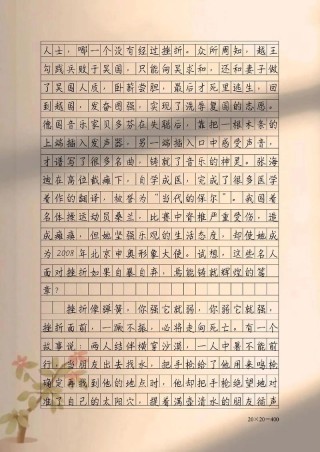 人士，哪一个没有经过挫折。众所周知，越王
勾践兵败于吴国，只能向吴求和，还和妻子做
了吴国人质，卧薪尝胆，最后才死里逃生，回
到越国，发奋图强，实现了洗辱复国的志愿。
德国音乐家贝多芬在失聪后，靠把一根木条的
上端插入发声器，另一端插入口中感受声音，
才谱写了很多名曲，铸就了音乐的神灵。张海
迪在高位截瘫下，自学成医，完成了很多医学
著作的翻译，被誉为“当代的保尔”。我国著
名体操运动员桑兰，比赛中脊椎严重受伤，造
成瘫痪，但她坚强乐观的生活态度，却使她成
为2008年北京申奥形象大使。试想，这些名人
面对挫折如果自暴自弃，焉能铸就辉煌的篇
章？
挫折像弹簧，你强它就弱，你弱它就强，
挫折面前，一蹶不振，必将走向死亡。有一个
故事说：两人结伴横穿沙漠，一人中暑不能前
行，当朋友出去找水，把手枪给了他用来鸣枪
确定再找到他的地点时，他却把手枪绝望地对
准了自己的太阳穴，提着满壶清水的朋友循声
20×20=400